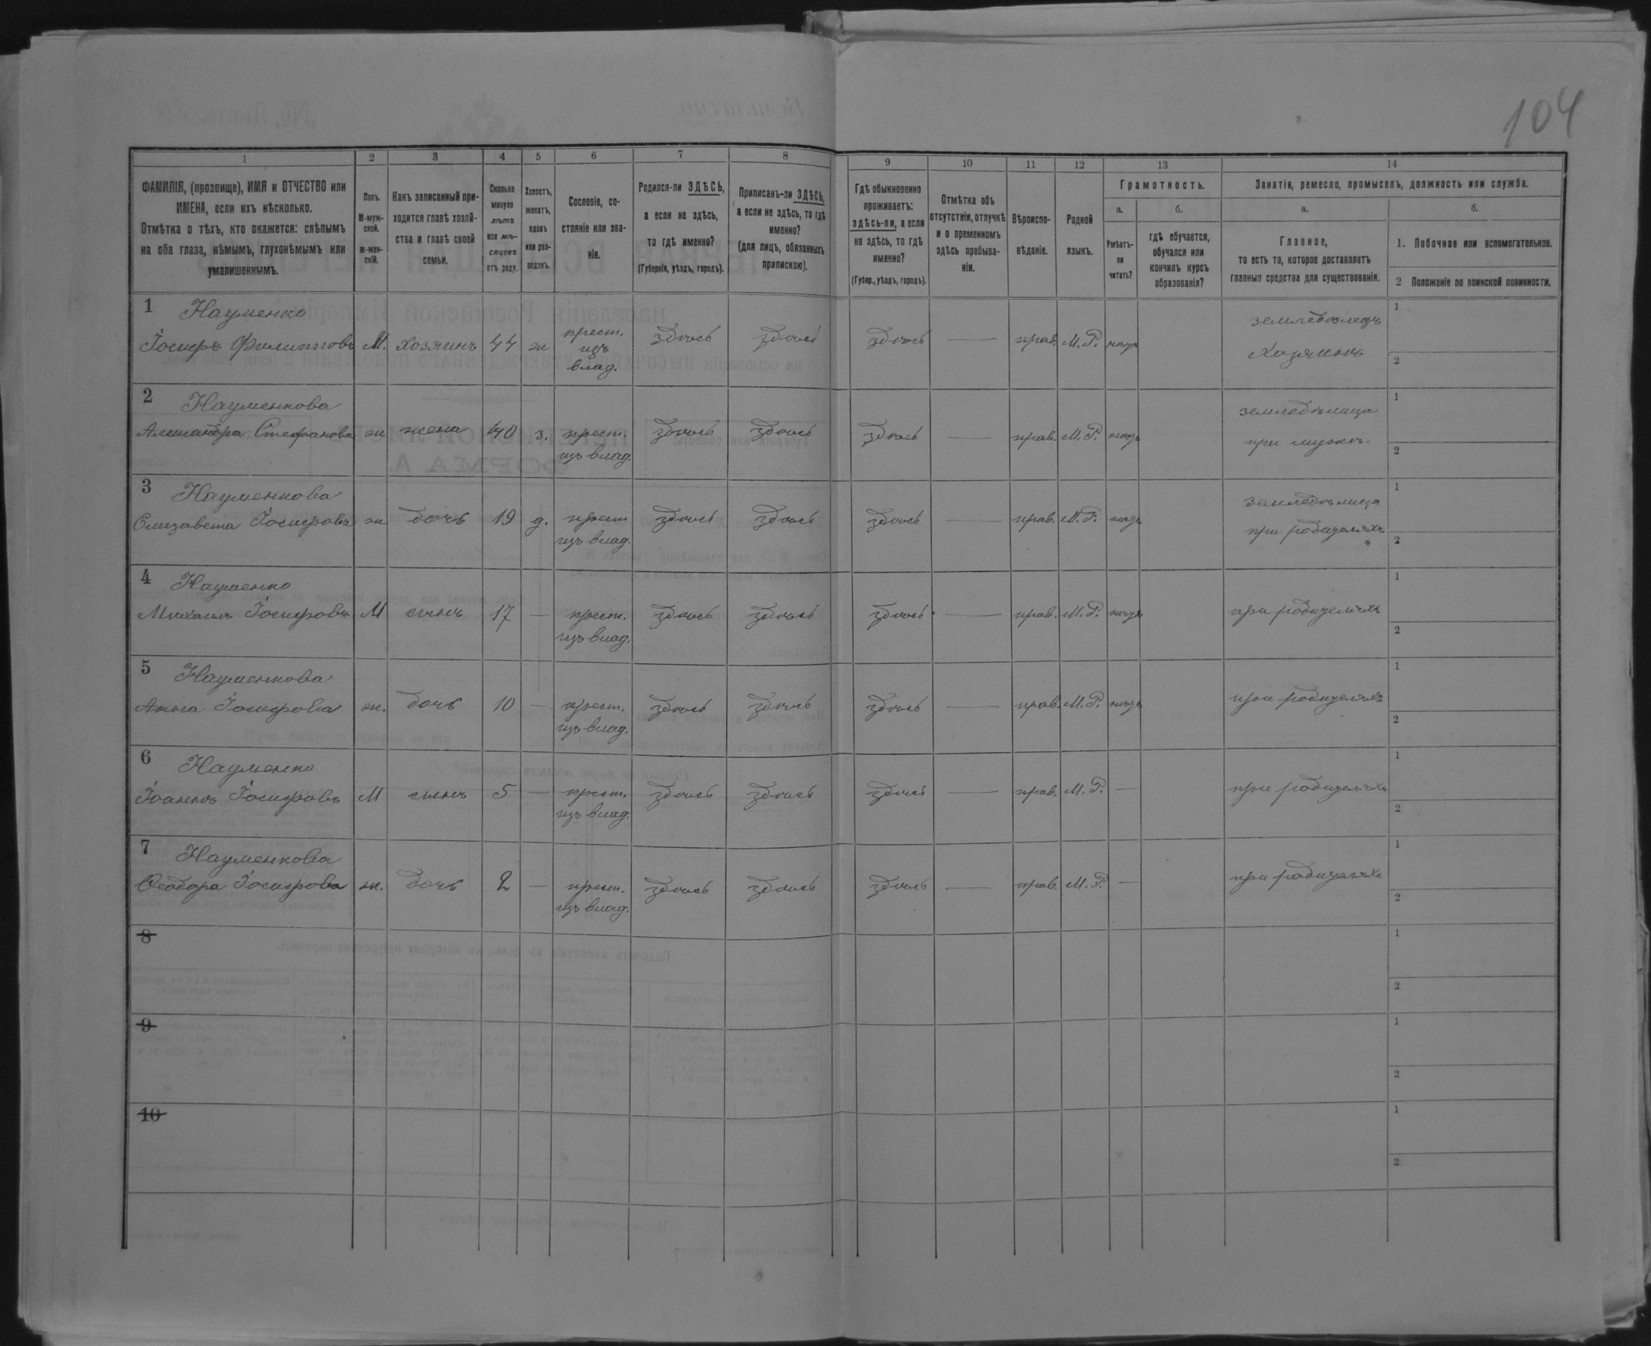 104
1
2
3
4
5
6
7
8
9
10
11
12
13
14
ФАМИЛІЯ, (прозвище), ИМЯ и ОТЧЕСТВО или
ИМЕНА, если ихъ нѣсколько.
Отмѣтка о тѣхъ, кто окажется: слѣпымъ
на оба глаза, нѣмымъ, глухонѣмымъ или
умалишеннымъ.
Полъ.
М-муж-
ской.
ж-жен-
скій.
Какъ записанный при-
ходится главѣ хозяй-
ства и главѣ своей
семьи.
Сколько
минуло
лѣтъ
или мѣ-
сяцевъ
отъ роду.
Холостъ,
женатъ,
вдовъ
или раз-
веденъ.
Сословіе, со-
стояніе или зва-
ніе.
Родился-ли ЗДѢСЬ,
а если не здѣсь,
то гдѣ именно?
(Губернія, уѣздъ, городъ).
Приписанъ-ли ЗДѢСЬ,
а если не здѣсь, то гдѣ
именно?
(для лицъ, обязанныхъ
припискою).
Гдѣ обыкновенно
проживаетъ:
здѣсь-ли, а если
не здѣсь, то гдѣ
именно?
(Губер., уѣздъ, городъ).
Отмѣтка объ
отсутствіи, отлучкѣ
и о временномъ
здѣсь пребыва-
ніи.
Вѣроиспо-
вѣданіе.
Родной
языкъ.
Грамотность.
а.
б.
Умѣетъ-
ли
читать?
гдѣ обучается,
обучался или
кончилъ курсъ
образованія?
Занятія, ремесло, промыселъ, должность или служба.
а.
б.
Главное,
то есть то, которое доставляетъ
главныя средства для существованія.
1. Побочное или вспомогательное.
2 Положеніе по воинской повинности.
1 Науменко
Іосифъ Филипповъ М. хозяинъ 44 ж крест. изъ влад. здѣсь здѣсь здѣсь — прав. М.Р. нѣтъ земледѣлецъ хозяинъ 1 2
2 Науменкова
Александра Стефанова ж жена 40 з. крест. изъ влад. здѣсь здѣсь здѣсь — прав. М.Р. нѣтъ земледѣлица при мужѣ. 1 2
3 Науменкова
Елизавета Іосифова ж дочь 19 д. крест. изъ влад. здѣсь здѣсь здѣсь — прав. М.Р. нѣтъ земледѣлица при родителяхъ 1 2
4 Науменко
Михаилъ Іосифовъ М сынъ 17 — крест. изъ влад. здѣсь здѣсь здѣсь — прав. М.Р. нѣтъ при родителяхъ 1 2
5 Науменкова
Анна Іосифова ж. дочь 10 — крест. изъ влад. здѣсь здѣсь здѣсь — прав. М.Р. нѣтъ при родителяхъ 1 2
6 Науменко
Іоаннъ Іосифовъ М сынъ 5 — крест. изъ влад. здѣсь здѣсь здѣсь — прав. М.Р. — при родителяхъ 1 2
7 Науменкова
Ѳеодора Іосифова ж. дочь 2 — крест. изъ влад. здѣсь здѣсь здѣсь — прав. М.Р. — при родителяхъ 1 2
8 1 2
9 1 2
10 1 2